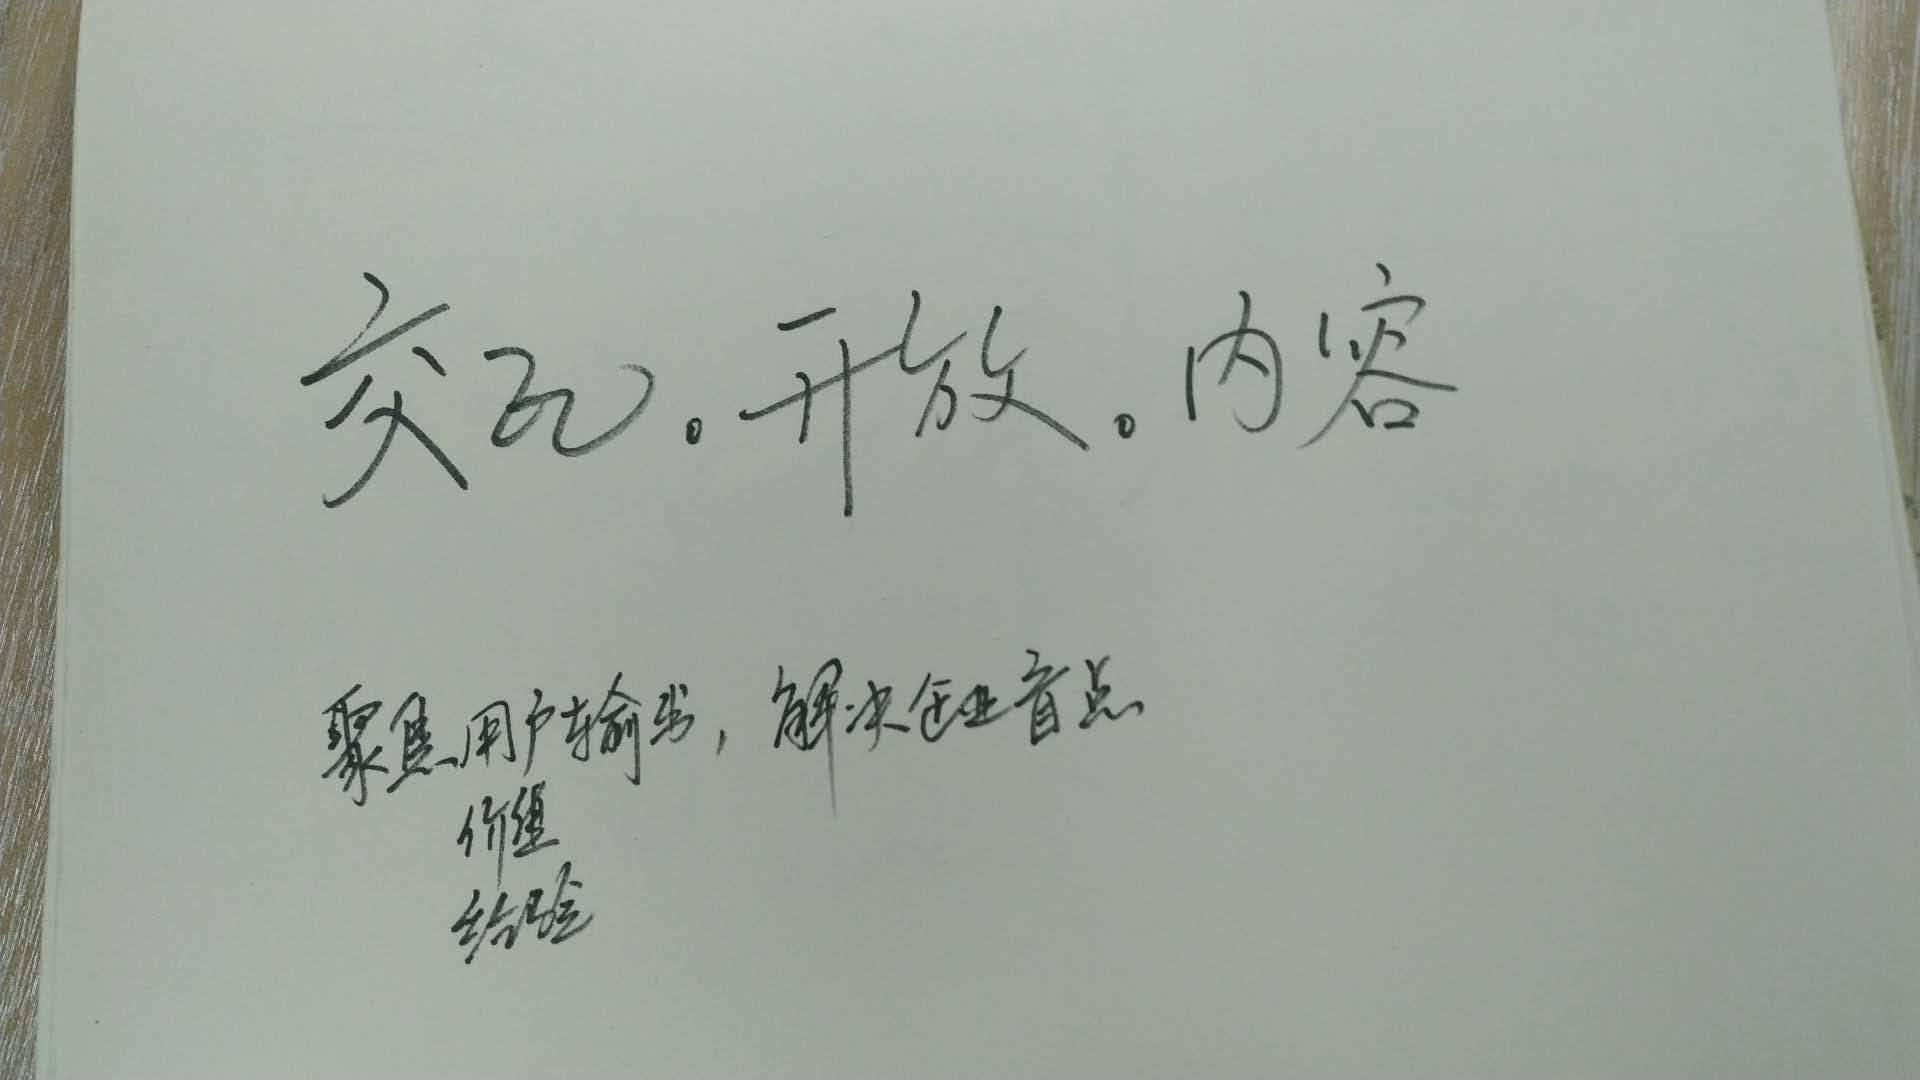 交互。开放。内容
聚焦用户输出，解决企业盲点
价值
经验